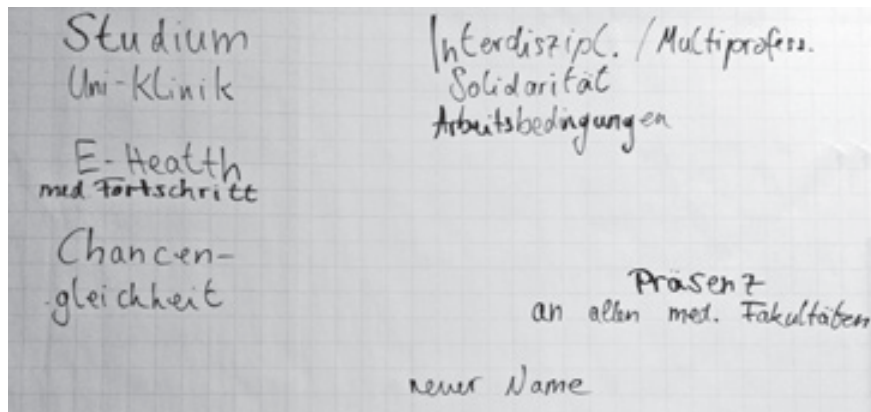 Studium
Uni-Klinik
E-Health
med Fortschritt
Chancen-
gleichheit
Interdiszipl. / Multiprofess.
Solidarität
Arbeitsbedingungen
Präsenz
an allen med. Fakultäten
neuer Name